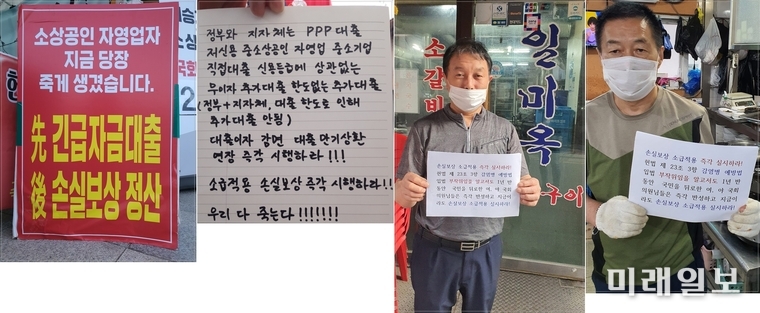 소상공인 자영업자
지금 당장
죽게 생겼습니다.
先 긴급자금대출
後 손실보상 정산
정부와 지자체는 PPP대출
저신용 중소상공인 자영업 중소기업
직접대출 신용등급에 상관없는
무이자 추가대출 한도없는 추가대출
(정부+지자체, 대출 한도로 인해
추가대출 안됨)
대출이자 감면 대출 만기상환
연장 즉각 시행하라!!!
소급적용 손실보상 즉각 시행하라!!
우리 다 죽는다!!!!!!!
일미옥
소갈비
구이
손실보상 소급적용 즉각 실시하라!
헌법 제 23조 3항 감염병 예방법
입법 부작위임을 알고서도 1년 반
동안 국민을 위로한 여, 야 국회
의원님들은 즉각 반성하고 지금이
라도 손실보상 소급적용 실시하라!
손실보상 소급적용 즉각 실시하라!
헌법 제 23조 3항 감염병 예방법
입법 부작위임을 알고서도 1년 반
동안 국민을 위로한 여, 야 국회
의원님들은 즉각 반성하고 지금이
라도 손실보상 소급적용 실시하라!
미래일보